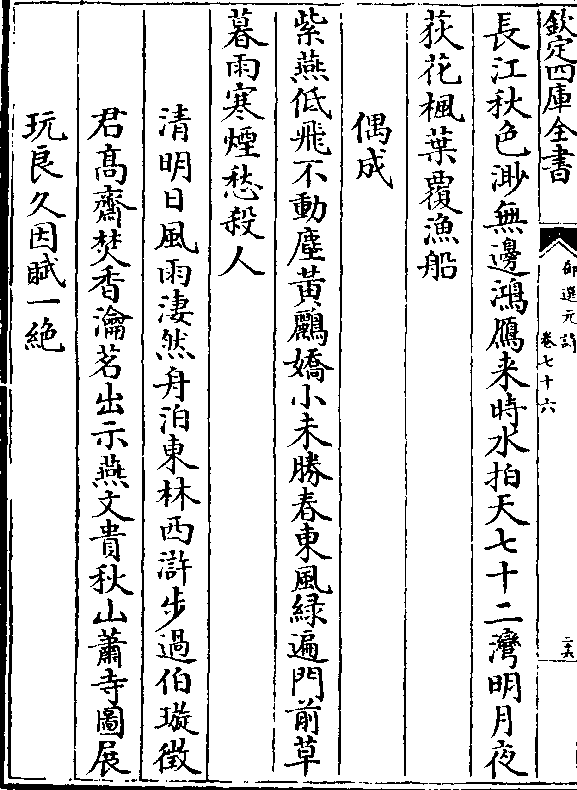 欽定四庫全書
御選元詩
卷七十六
二六
長江秋色渺無邊鴻雁来時水拍天七十二灣明月夜
荻花楓葉覆漁船
偶成
紫燕低飛不動塵黃鸝嬌小未勝春東風緑遍門前草
暮雨寒煙愁殺人
清明日風雨淒然舟泊東林西滸步過伯璇徴
君髙齋焚香瀹茗出示燕文貴秋山蕭寺圖展
玩良久因賦一絶